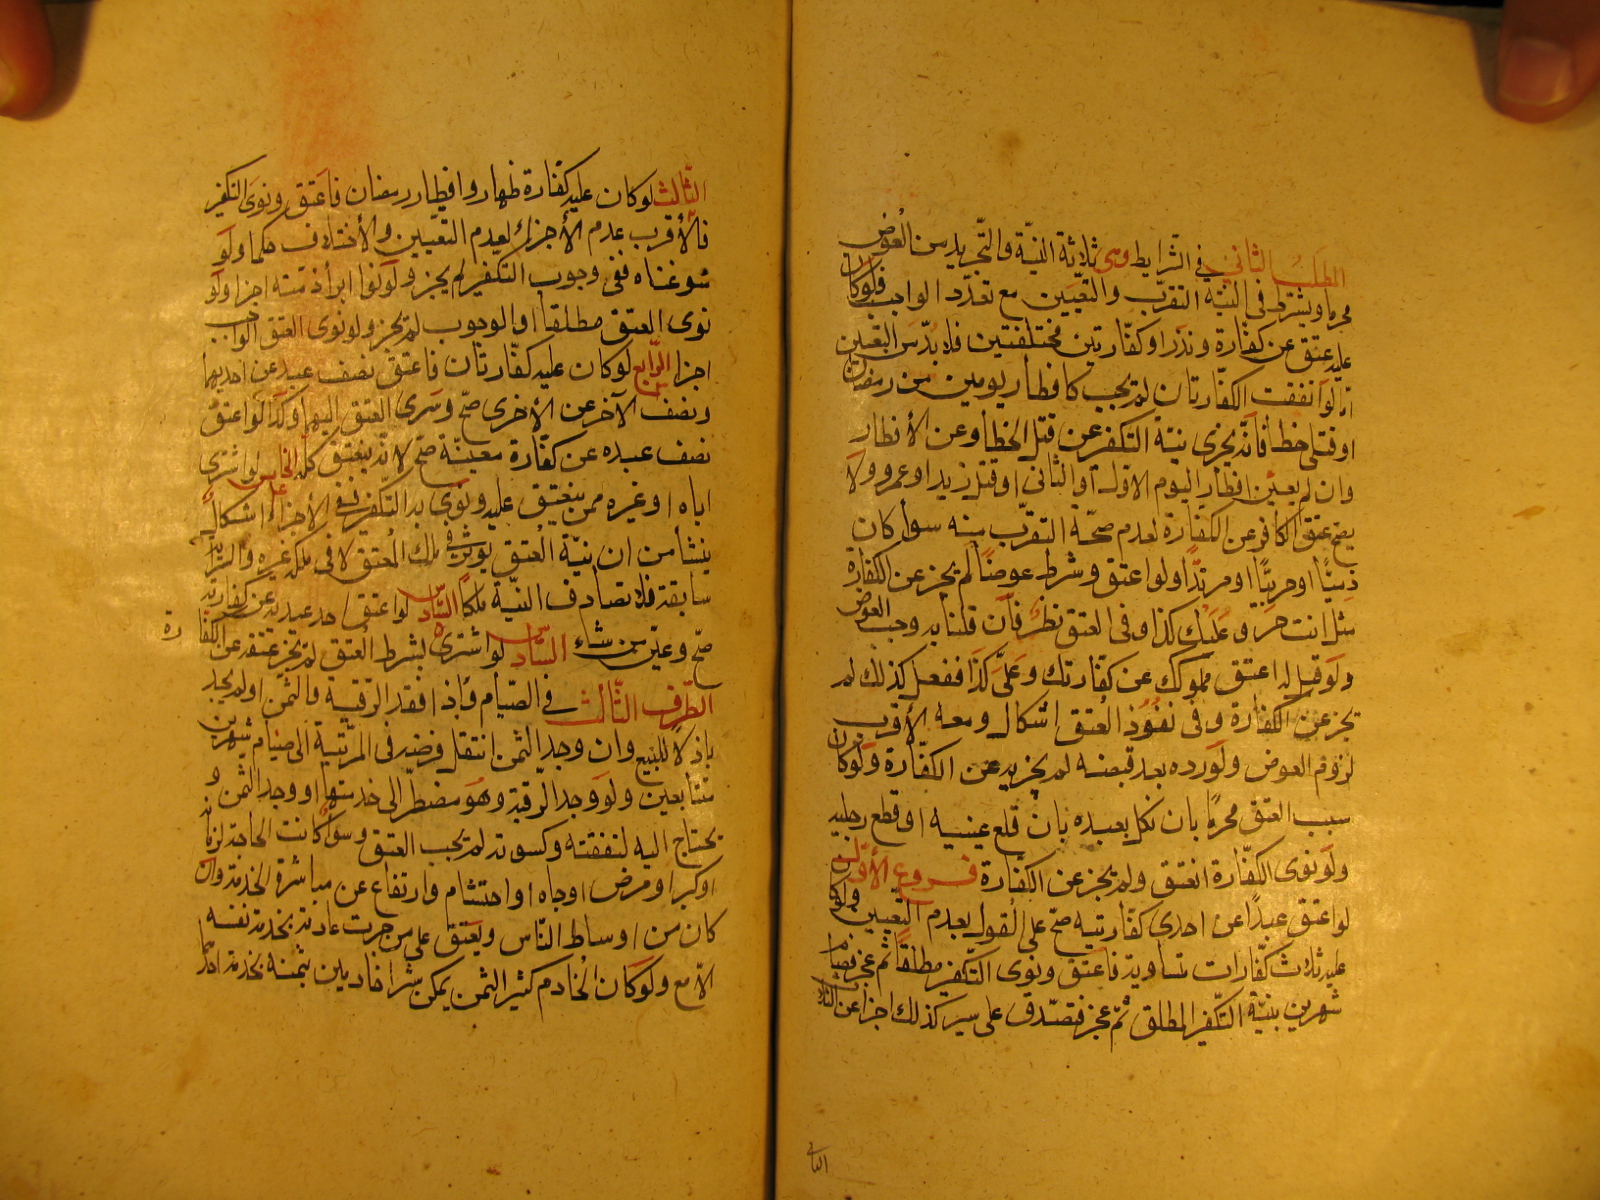 المطلب الثاني في الشرايط وهى ثلاثة النيّة والتجريد من العوض
محرما ويشترط فى النية التقرّب والتعيين مع تعدّد الواجب فلو كان
عليه عتق عن كفّارة ونذر او كفّارتين مختلفتين فلا بدّ من التعيين
امّا لو اتفقت الكفّارتان لم يجب كافطار يومين من رمضان
او قتلى خطأ فانّه يجزى بنيّة التكفير عن قتل الخطأ وعن الافطار
وان لم يعيّن افطار اليوم الاول او الثانى او قتل زيد او عمرو ولا
يصح عتق الكافر عن الكفارة لعدم صحّة التقرّب منه سواء كان
ذميّا او حربيّا او مرتدّا ولو اعتق وشرط عوضًا لم يجز عن الكفارة
مثل انت حر وعليك كذا وفى العتق نظر فان قلنا به وجب العوض
ولو قيل له اعتق مملوكك عن كفّارتك وعلىّ كذا ففعل كذلك لم
يجز عن الكفارة وفى نفوذ العتق اشكال ومعه الاقرب
لزوم العوض ولو رده بعد قبضه لم يجزيه عن الكفّارة ولو كان
سبب العتق محرمًا بان نكل بعبده بان قلع عينيه او قطع رجليه
ولو نوى الكفّارة انعتق ولم يجز عن الكفارة فروع الأوّل
لو اعتق عبدًا عن احدى كفّارتيه صحّ على القول بعدم التعيين ولو كان
عليه ثلاث كفّارات متساوية فاعتق ونوى التكفير مطلقًا ثم عجز فصام
شهرين بنيّة التكفير المطلق ثمّ عجز فتصدّق على ستين كذلك اجزا عن الثلاث
الثانى
الثّالث لو كان عليه كفّارة ظهار وافطار رمضان فاعتق ونوى التكفير
فالأقرب عدم الأجزاء لعدم التعيين والأختلاف حكما ولو
سوغناه ففى وجوب التكفير لم يجز ولو نوا ابراء ذمّته اجزا ولو
نوى العتق مطلقا او الوجوب لم يجز ولو نوى العتق الواجب
اجزا الرّابع لو كان عليه كفّارتان فاعتق نصف عبد عن احديهما
ونصف الآخر عن الأخرى صحّ وسرى العتق اليهما وكذا لو اعتق
نصف عبده عن كفّارة معيّنة صحّ لانّه ينعتق كلّه الخامس لو اشترى
اباه او غيره ممن ينعتق عليه ونوى به التكفير ففى الأجزاء اشكال
ينشأ من ان نيّة العتق يوثر فى ملك المعتق لا فى ملك غيره والسّراية
سابقة فلا تصادف النيّة ملكًا السّادس لو اعتق احد عبديه عن كفارته
صحّ وعيّن من شاء السّادس لو اشترى بشرط العتق لم يجز عتقه عن الكفا
رة
الطّرف الثّالث في الصّيام فاذا فقد الرّقبة والثمن او لم يجد
باذلًا للبيع وان وجد الثمن انتقل فرضه فى المرتّبة الى صيام شهرين
متتابعين ولو وجد الرّقبة وهو مضطرّ الى خدمتها او وجد الثمن و
يحتاج اليه لنفقته وكسوته لم يجب العتق وسواء كانت الحاجة لزمانة
او كبر او مرض او جاه او احتشام وارتفاع عن مباشرة الخدمة وان
كان من اوساط النّاس ويعتق على من جرت عادته بخدمة نفسه
الّا مع ولو كان الخادم كثير الثمن يمكن شرا خادمين بثمنه يخدمه احدهما